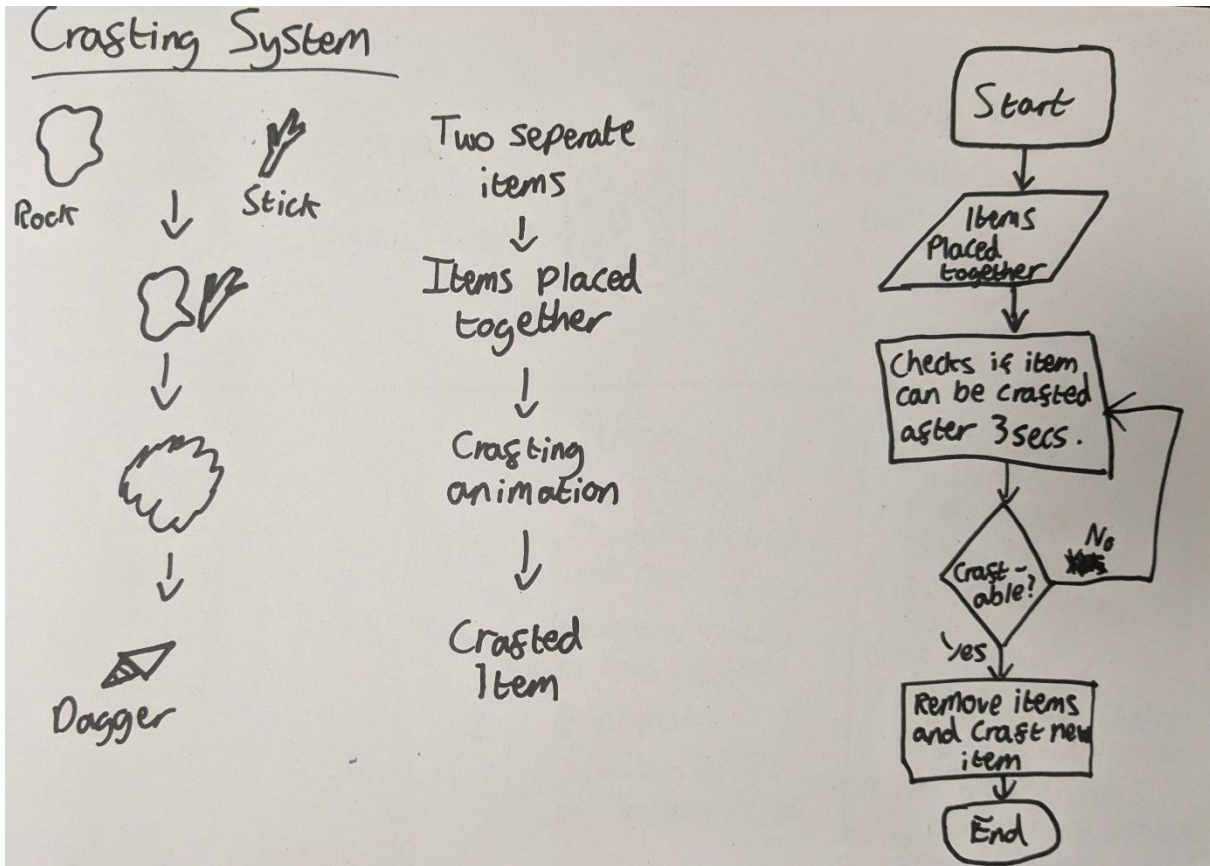 Crafting System
Rock
Stick
Dagger
Two seperate
items
Items Placed
together
Crafting
animation
Crafted
Item
Start
Items
Placed
together
Checks if item
can be crafted
after 3 secs.
Craft-
able?
No
Yes
Remove items
and Craft new
item
End